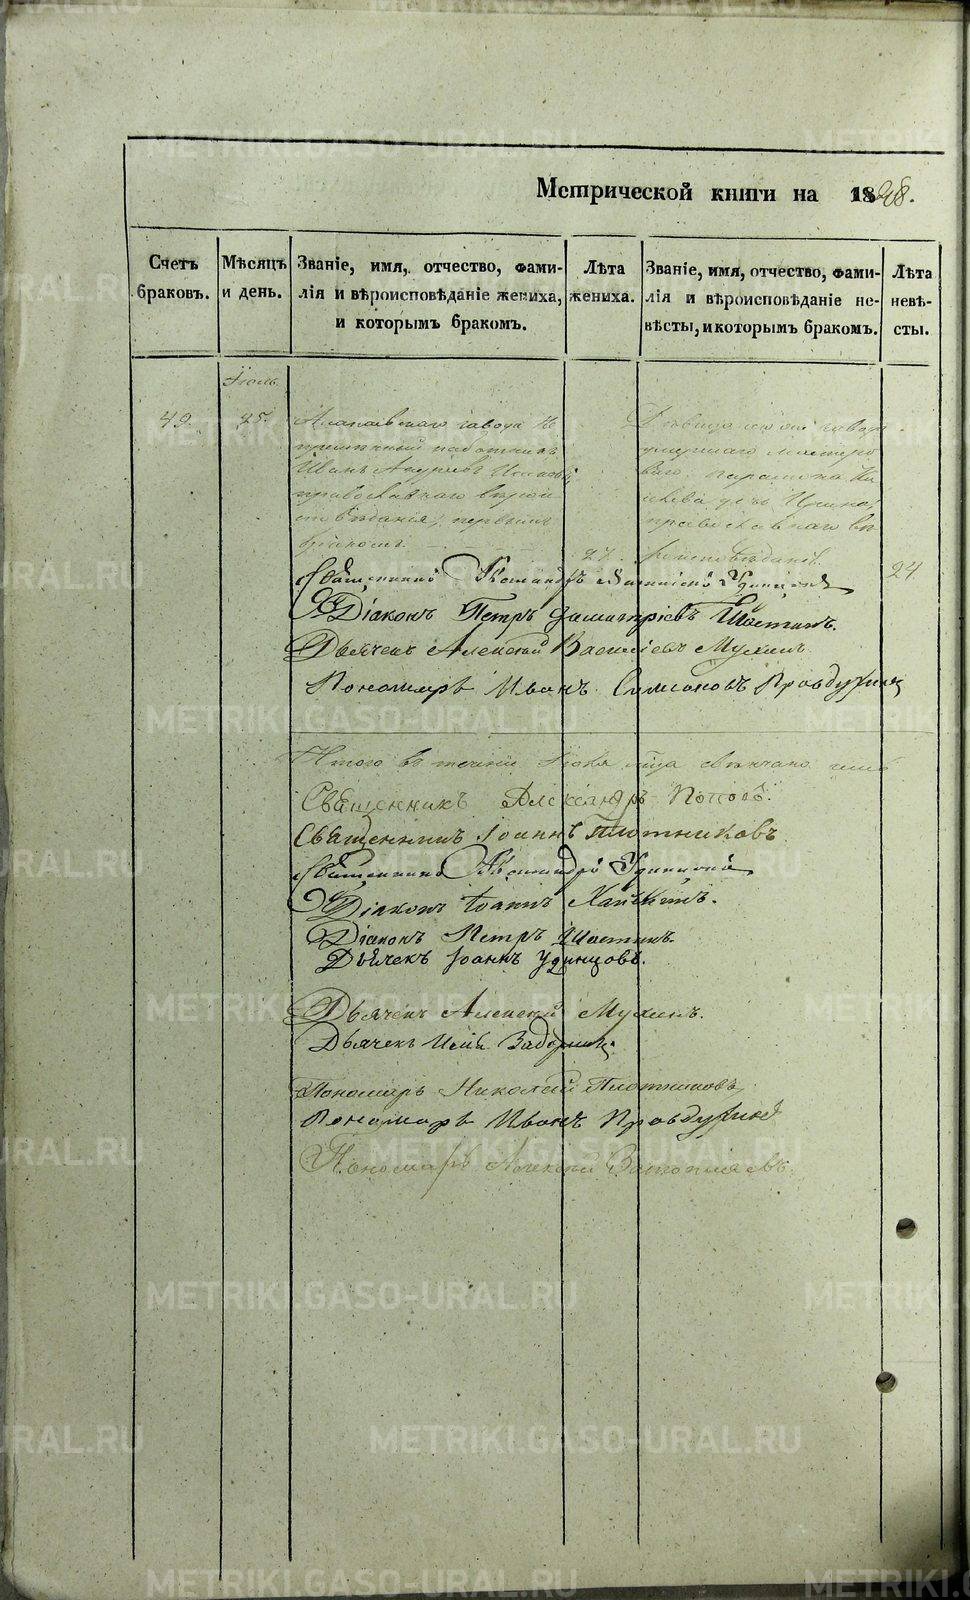 Метрической книги на 1868.
Счетъ браковъ.
Мѣсяцъ и день.
Званіе, имя, отчество, фами-
лія и вѣроисповѣданіе жениха,
и которымъ бракомъ.
Лѣта
жениха.
Званіе, имя, отчество, фами-
лія и вѣроисповѣданіе не-
вѣсты, и которымъ бракомъ.
Лѣта
невѣ-
сты.
Іюль.
49. 25.
Алапаевскаго завода
работникъ
Иванъ Андреевъ
православнаго вѣрои
сповѣданія, первымъ
бракомъ.
27.
Дѣвица завод
умершаго мастеро
ваго
дочь Ирина,
православнаго вѣ
роисповѣданія.
24
Священникъ
Діаконъ Петръ Димитріевъ Шастинъ.
Дьячекъ Алексей Василіевъ Мухинъ
Пономарь Иванъ Симеоновъ Правдухинъ
Итого въ теченіи Іюля м-ца вѣнчано
Священникъ Александръ Поповъ.
Священникъ Іоаннъ Плотниковъ
Священникъ
Діаконъ Іоаннъ
Діаконъ Петръ Шастинъ.
Дьячекъ Іоаннъ Удинцовъ.
Дьячекъ Алексей Мухинъ.
Дьячекъ
Пономарь Николай Плотниковъ
Пономарь Иванъ Правдухинъ
Пономарь Алексей
METRIKI.GASO-URAL.RU